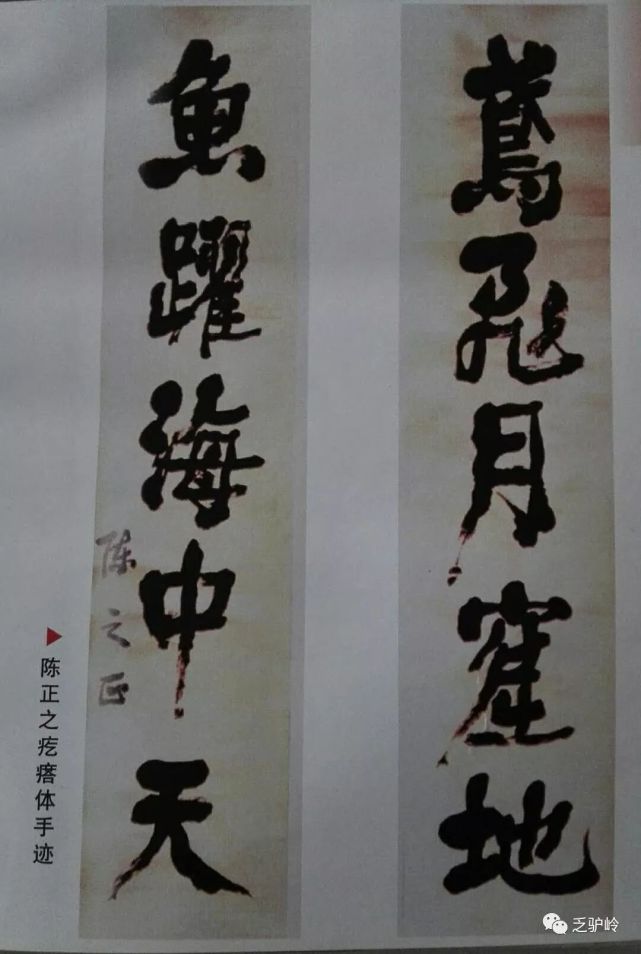 鳶飛月窟地
魚躍海中天
陈之正
陈正之疙瘩体手迹
乏驴岭